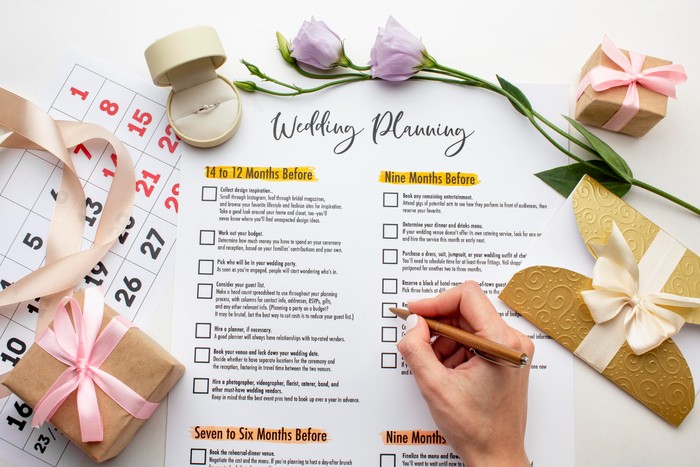 Wedding Planning
14 to 12 Months Before
Collect design inspiration.
Scroll through Instagram, leaf through bridal magazines,
and browse your favorite lifestyle and fashion sites for inspiration.
Take a good look around your home and closet, too–you'll
never know where you'll find unexpected design ideas.
Work out your budget.
Determine how much money you have to spend on your ceremony
and reception, based on your families' contributions and your own.
Pick who will be in your wedding party.
As soon as you're engaged, people will start wondering who's in.
Consider your guest list.
Make a head count spreadsheet to use throughout your planning
process, with columns for contact info, addresses, RSVPs, gifts,
and any other relevant info. (Planning a party on a budget?
It may be brutal, but the best way to cut costs is to reduce your guest list.)
Hire a planner, if necessary.
A good planner will always have relationships with top-rated vendors.
Book your venue and lock down your wedding date.
Decide whether to have separate locations for the ceremony
and the reception, factoring in travel time between the two venues.
Hire a photographer, videographer, florist, caterer, band, and
other must-have wedding vendors.
Keep in mind that the best event pros tend to book up over a year in advance.
Seven to Six Months Before
Book the rehearsal-dinner venue.
Negotiate the cost and the menu. If you're planning to host a day-after brunch
Nine Months Before
Book any remaining entertainment.
Attend gigs of potential acts to see how they perform in front of audiences,
then reserve your favorite.
Determine your dinner and drinks menu.
If your wedding venue doesn't offer its own catering service, look for
and hire the service this month or early next.
Purchase a dress, suit, jumpsuit, or your wedding outfit of
You'll need to schedule time for at least three fittings.
postponed for another two to three months.
Reserve a block of hotel
Pick three hotels at
Nine
Finalize the menu and
You'll want to wait until
1
8
15
22
7
14
21
5
13
20
27
12
19
26
10
16
23/30